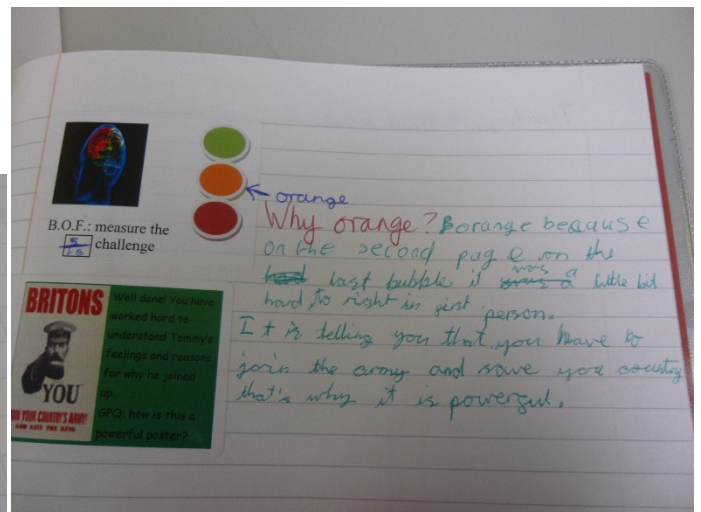 orange
B.O.F.: measure the
challenge
Why orange? orange because
on the second page on the
last bubble it was a little bit
hard to right in first person.
It is telling you that you have to
join the army and save you country
that's why it is powerful.
BRITONS
YOU
JOIN YOUR COUNTRY'S ARMY!
GOD SAVE THE KING
Well done! You have
worked hard to
understand Tommy's
feelings and reasons
for why he joined
up.
GPQ: how is this a
powerful poster?